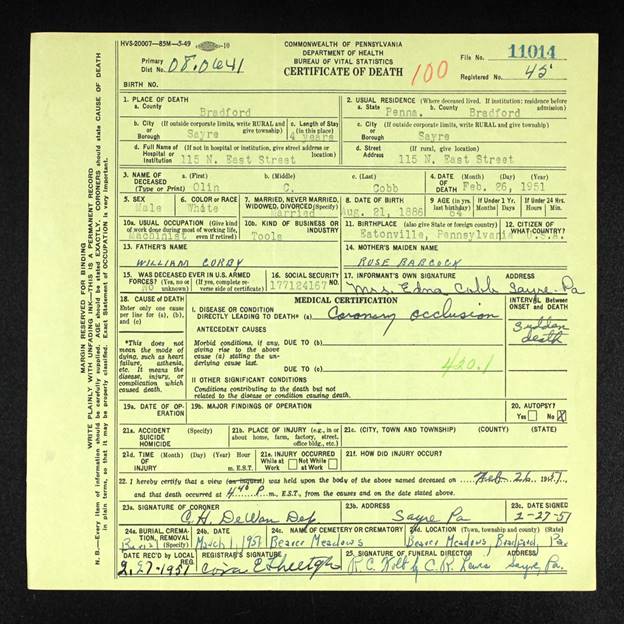 HVS-20007—85M—5-49 10
COMMONWEALTH OF PENNSYLVANIA
DEPARTMENT OF HEALTH
BUREAU OF VITAL STATISTICS
CERTIFICATE OF DEATH 100
File No. 11014
Registered No. 45
Primary Dist No.
BIRTH NO.
1. PLACE OF DEATH
a. County Bradford
2. USUAL RESIDENCE (Where deceased lived. If institution: residence before admission)
a. State Penna. b. County Bradford
b. City (If outside corporate limits, write RURAL and give township) or Borough Sayre
c. Length of Stay (in this place) 4 years
c. City (If outside corporate limits, write RURAL and give township) or Borough Sayre
d. Full Name of Hospital or Institution (If not in hospital or institution, give street address or location) 115 N. East Street
d. Street Address (If rural, give location) 115 N. East Street
3. NAME OF DECEASED (Type or Print) a. (First) Olin b. (Middle) C. c. (Last) Cobb
4. DATE OF DEATH (Month) (Day) (Year) Feb. 26, 1951
5. SEX Male
6. COLOR or RACE White
7. MARRIED, NEVER MARRIED, WIDOWED, DIVORCED (Specify) Married
8. DATE OF BIRTH Aug. 21, 1886
9. AGE (In years last birthday) 64 If Under 1 Yr. Months Days If Under 24 Hrs. Hours Min.
10a. USUAL OCCUPATION (Give kind of work done during most of working life, even if retired) Machinist
10b. KIND OF BUSINESS OR INDUSTRY Tools
11. BIRTHPLACE (Give state or foreign country) Eatonville, Pennsylvania
12. CITIZEN OF WHAT COUNTRY? U.S.A.
13. FATHER'S NAME
WILLIAM
14. MOTHER'S MAIDEN NAME
ROSE BABCOCK
15. WAS DECEASED EVER IN U.S. ARMED FORCES? (Yes, no or unknown) (If yes, complete reverse side of certificate) No
16. SOCIAL SECURITY NO. 177124167
17. INFORMANT'S OWN SIGNATURE ADDRESS
Mrs. Edna Cobb Sayre Pa
18. CAUSE OF DEATH
Enter only one cause per line for (a), (b), and (c)
*This does not mean the mode of dying, such as heart failure, asthenia, etc. It means the disease, injury, or complication which caused death.
MEDICAL CERTIFICATION
INTERVAL Between ONSET and DEATH
I. DISEASE OR CONDITION DIRECTLY LEADING TO DEATH* (a) Coronary Occlusion
Sudden death
ANTECEDENT CAUSES
Morbid conditions, if any, giving rise to the above cause (a) stating the underlying cause last.
DUE TO (b)
DUE TO (c)
420.1
II OTHER SIGNIFICANT CONDITIONS
Conditions contributing to the death but not related to the disease or condition causing death.
19a. DATE OF OPERATION
19b. MAJOR FINDINGS OF OPERATION
20. AUTOPSY? Yes No X
21a. ACCIDENT SUICIDE HOMICIDE (Specify)
21b. PLACE OF INJURY (e.g., in or about home, farm, factory, street, office bldg., etc.)
21c. (CITY, TOWN and TOWNSHIP) (COUNTY) (STATE)
21d. TIME OF INJURY (Month) (Day) (Year) Hour m. E.S.T.
21e. INJURY OCCURRED While at Work Not While at Work
21f. HOW DID INJURY OCCUR?
22. I hereby certify that a view (an inquest) was held upon the body of the above named deceased on Feb 26 1951
and that death occurred at 4:45 P m., E.S.T., from the causes and on the date stated above.
23a. SIGNATURE OF CORONER
C.H. DeWan Dep
23b. ADDRESS
Sayre Pa
23c. DATE SIGNED
2-27-51
24a. BURIAL, CREMATION, REMOVAL (Specify) Burial
24b. DATE March 1, 1951
24c. NAME OF CEMETERY OR CREMATORY
24d. LOCATION (Town, township and county) (State)
Meadows, Bradford, Pa.
DATE REC'D BY LOCAL REG. 2-27-1951
REGISTRAR'S SIGNATURE
Cora E.
25. SIGNATURE OF FUNERAL DIRECTOR ADDRESS
R.C. by C.R. Lewis Sayre, Pa.
MARGIN RESERVED FOR BINDING
WRITE PLAINLY WITH UNFADING INK—THIS IS A PERMANENT RECORD
N. B.—Every item of information should be carefully supplied. AGE should be stated EXACTLY. CORONERS should state CAUSE OF DEATH in plain terms, so that it may be properly classified. Exact Statement of OCCUPATION is very important.